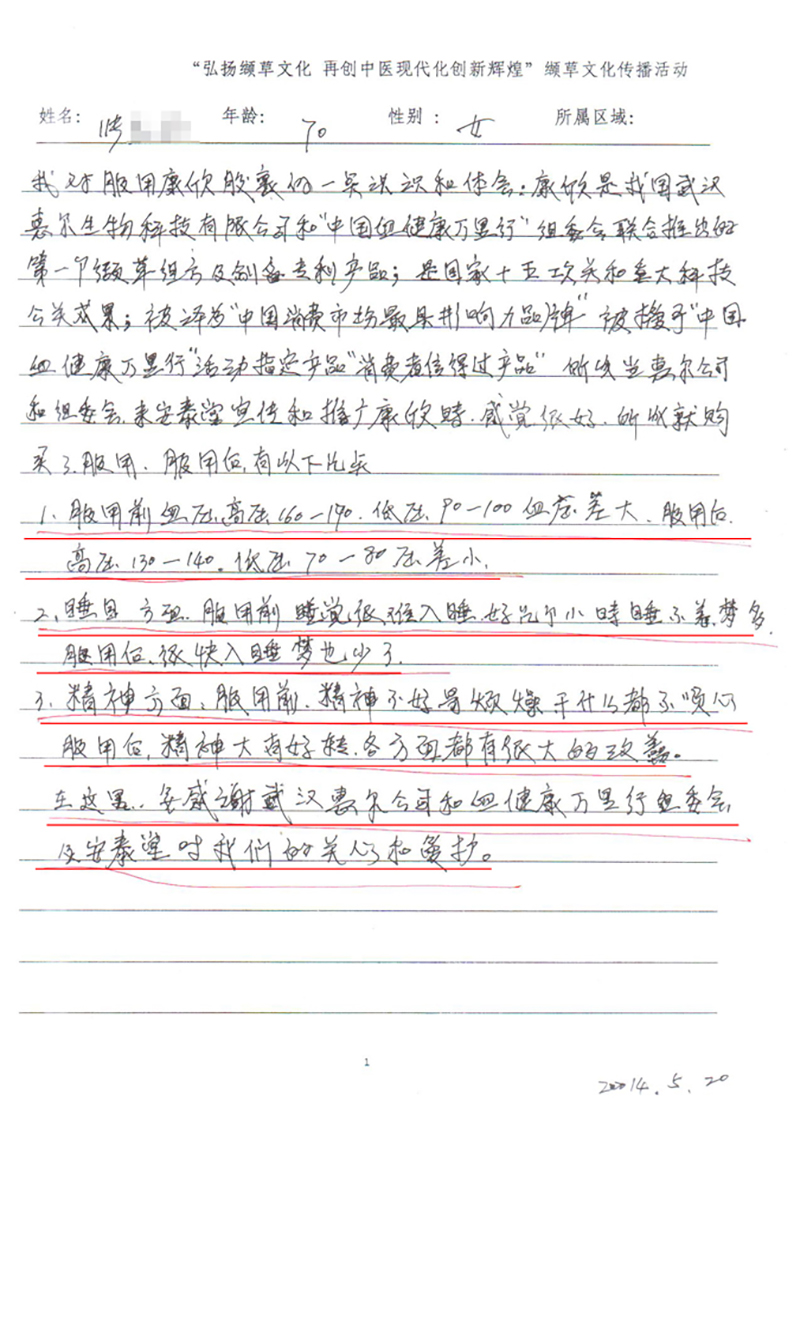 “弘扬缬草文化 再创中医现代化创新辉煌”缬草文化传播活动
姓名： 年龄： 70 性别 ： 女 所属区域：
我对服用康欣胶囊的一点认识和体会：康欣是我国武汉
惠尔生物科技有限公司和“中国血健康万里行”组委会联合推出的
第一个缬草组方及制备专利产品；是国家十五攻关和重大科技
公关成果；被评为“中国消费市场最具影响力品牌”被授予“中国
血健康万里行”活动指定产品“消费者信得过产品” 所以当惠尔公司
和组委会来安泰堂宣传和推广康欣時.感觉很好.所以就购
买了服用.服用后,有以下几点
1、服用前血压,高压160—170.低压.90—100血压差大、服用后.
高压130—140.低压70—80压差小.
2、睡眠方面.服用前睡觉很难入睡.好几个小時睡不着.梦多.
服用后、很快入睡梦也少了.
3、精神方面：服用前.精神不好易烦燥干什么都不顺心
服用后,精神大有好转.各方面都有很大的改善。
在这里..要感谢武汉惠尔公司和血健康万里行组委会.
及安泰堂对我们的关心和爱护。
1
2014.5.20